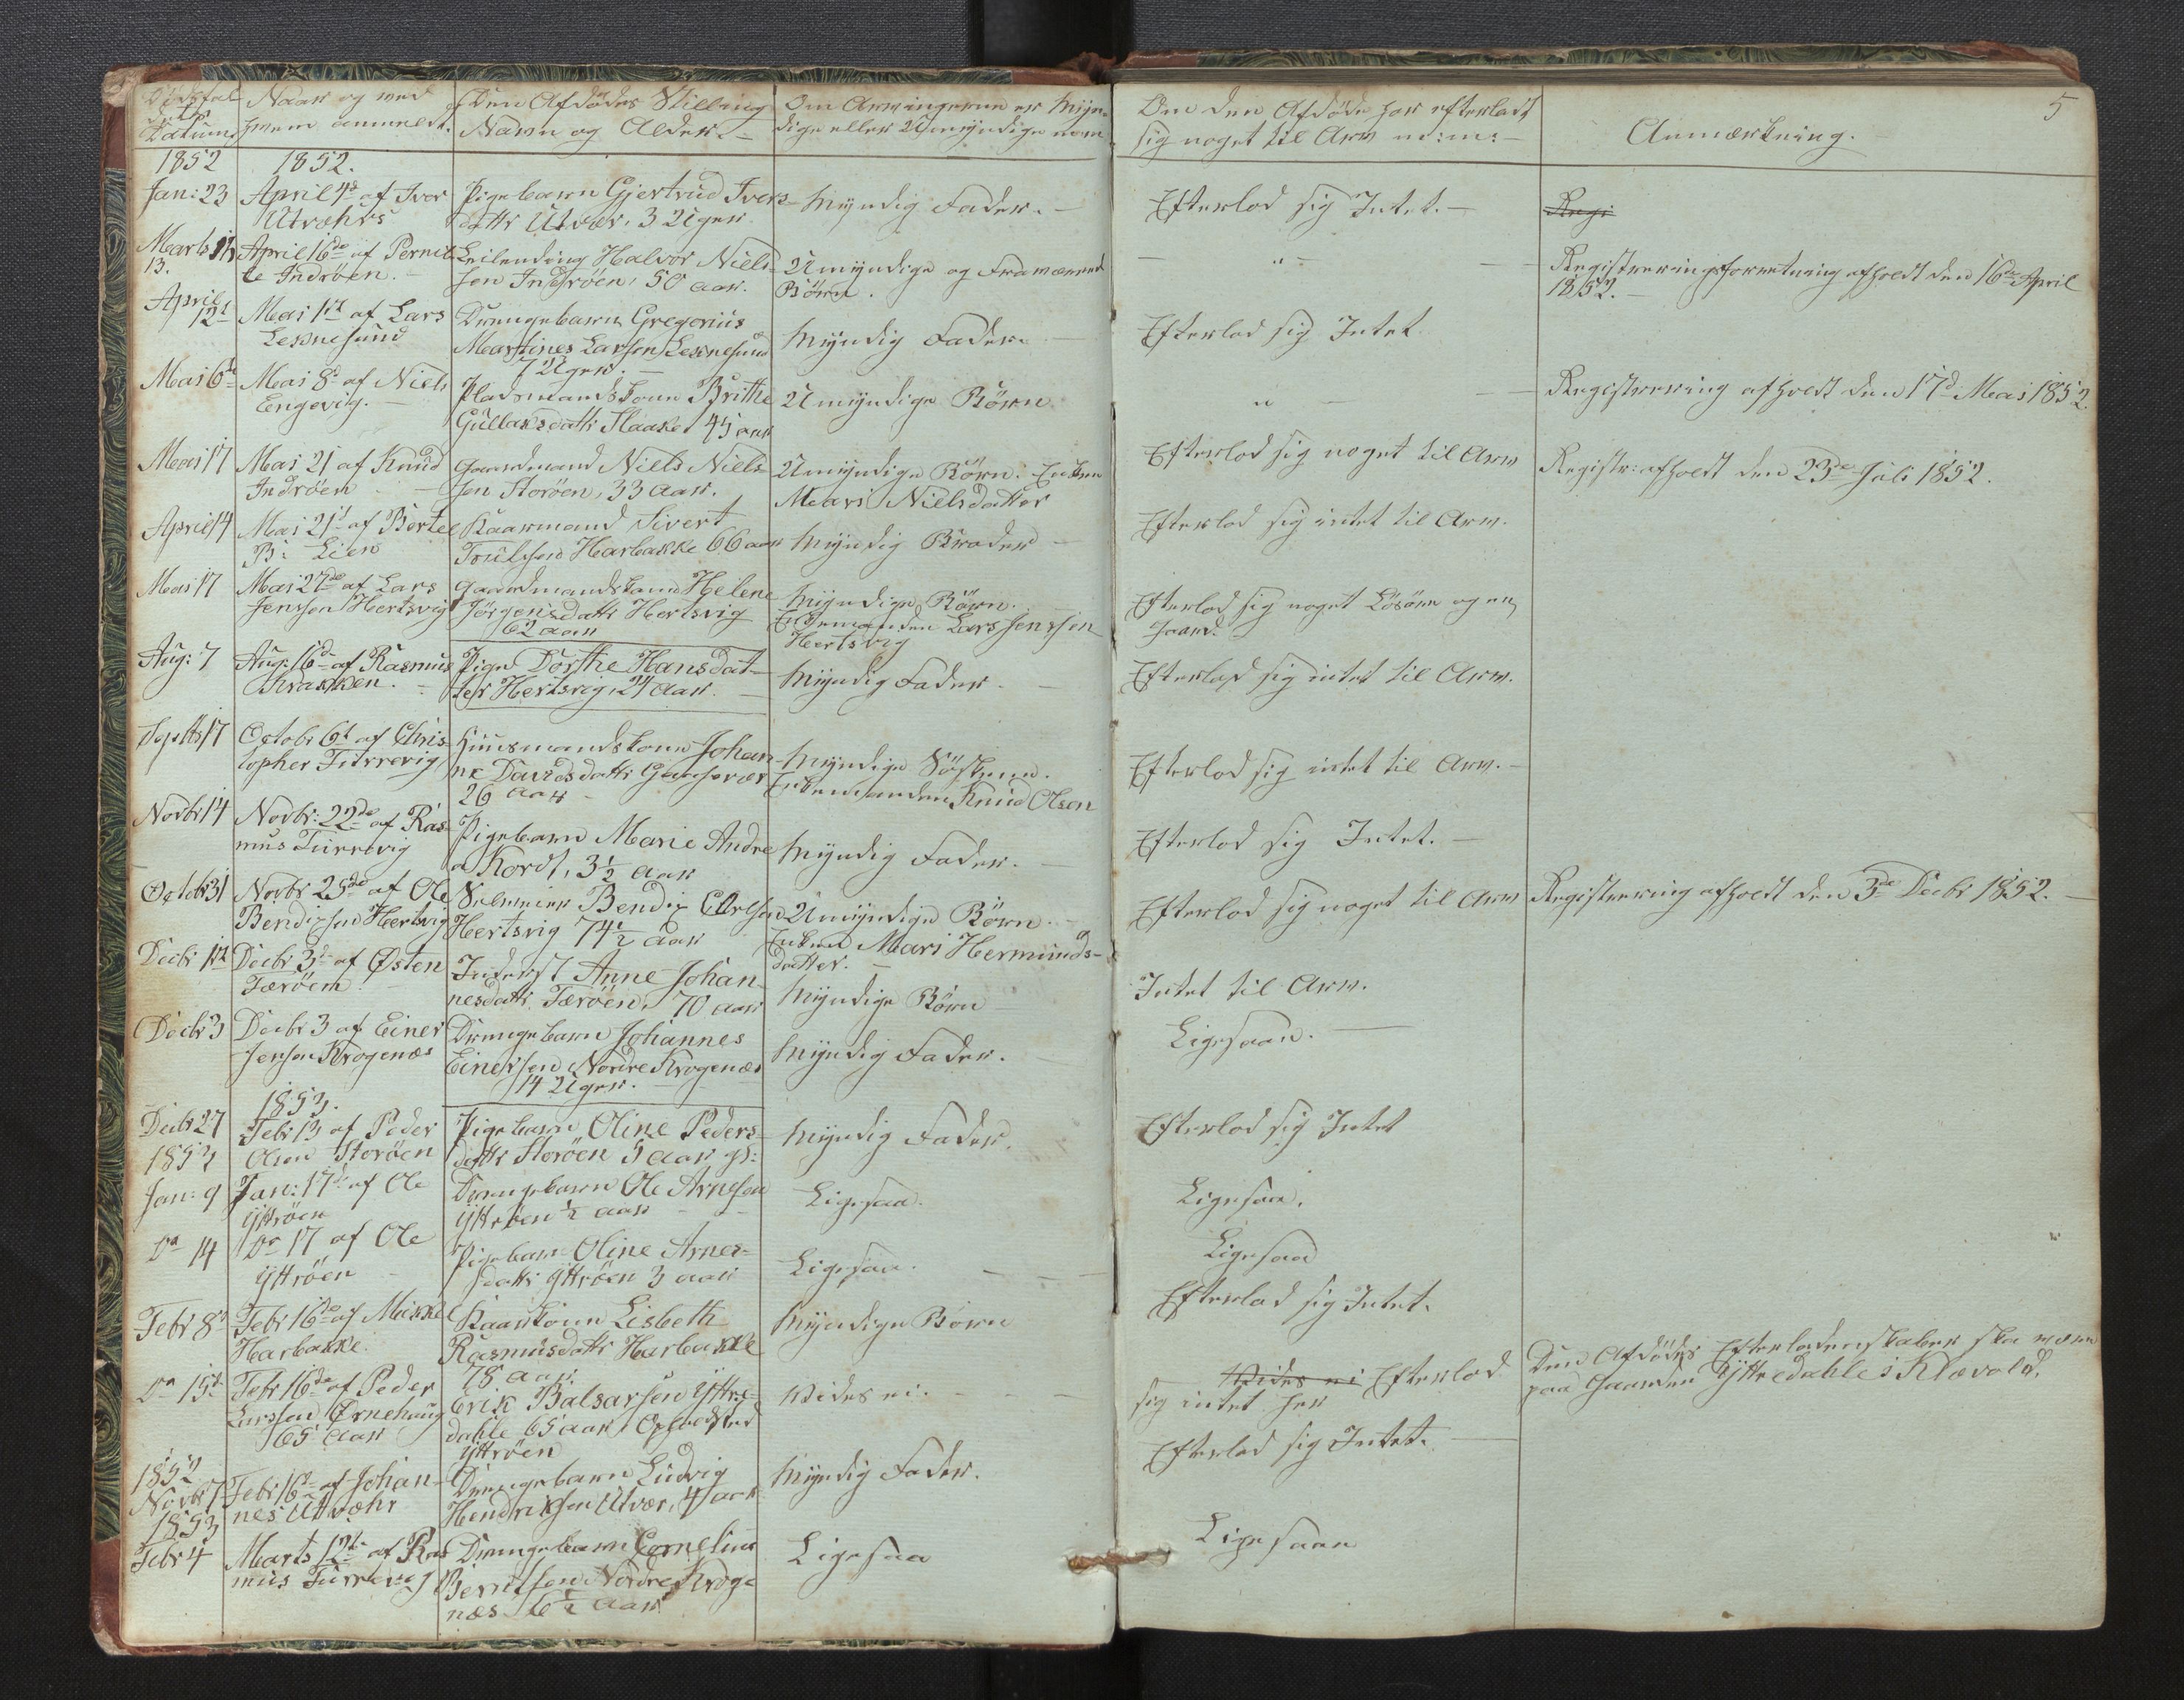 Dödsfal-
dets
Datum
Naar og ved
hvem anmeldt.
Den Afdödes Stilling
Navn og Alder.
Om Arvingerne er Myn-
dige eller Umyndige
Om den Afdöde har efterladt
sig noget til Arv m:m:
Anmærkning.
5
1852
1852.
Jan: 23
April 4d af Iver
Utvæhrs
Pigebarn Gjertrud Ivers-
dattr Utvær, 3 Uger
Myndig Fader.
Efterlod sig Intet.
Regi
Marts
13.
April 16de af Pernil-
le Indröen.
Leilending Halvor Niels-
sen Indröen, 50 aar.
Umyndige og Fraværende
Börn.
"
Registreringsforretning afholdt den 16de April
1852.
April
12t
Mai 1st af Lars
Lexnesund
Drengebarn Gregorius
Martines Larssen Lexnesund
7 Uger.
Myndig Fader.
Efterlod sig Intet
Mai 6te
Mai 8d af Niels
Engevig.
Pladsmandskone Brithe
Gullaksdattr Haake 45 aar
Umyndige Börn
"
Registrering afholdt den 17d Mai 1852.
Mai 17
Mai 21 af Knud
Indröen
Gaardmand Niels Niels-
sen Storöen, 33 aar.
Umyndige Börn. Enken
Mari Nielsdatter
Efterlod sig noget til Arv
Registr: afholdt den 23de Juli 1852.
April 14
Mai 21d af Bertel
B: Lien
Kaarmand Sivert
Troulssen Harbakke 66 aar
Myndig Broder
Efterlod sig intet til Arv.
Mai 17
Mai 27de af Lars
Jenssen Hertsvig
Gaardmandskone Helene
Jörgensdattr Hertsvig
62 aar
Myndige Börn.
Enkemanden Lars Jenssen
Hertsvig
Efterlod sig noget Lösöre og en
Gaard.
Aug: 7
Aug: 16de af Rasmus
Krakken.
Pige Dorthe Hansdat-
ter Hertsvig, 24 aar.
Myndig Fader.
Efterlod sig intet til Arv.
Septbr 17
Octobr 6t af Chris-
topher Turrevig
Huusmandskone Johan-
ne Davidsdattr Gaasvær
26 aar
Myndige Söskene.
Enkemanden Knud Olsen
Efterlod sig intet til Arv.
Novbr 14
Novbr: 22de af Ras-
mus Turrevig
Pigebarn Marie Andre
a Kordt, 3½ aar
Myndig Fader.
Efterlod sig Intet.
Octobr 31
Novbr 25de af Ole
Bendixsen Hertsvig
Bendix Olssen
Hertsvig 74½ aar
Umyndige Börn.
Enken Mari Hermunds-
datter.
Efterlod sig noget til Arv
Registrering afholdt den 3de Decbr 1852.
Decbr 1st
Decbr 3d af Østen
Færöen
Inderst Anne Johan-
nesdattr Færöen, 70 aar
Myndige Börn
Intet til Arv.
Decbr 3
Decbr 3 af Einer
Jensen Krogenæs
Drengebarn Johannes
Einerssen Nordre Krogenæs
14 Uger.
Myndig Fader.
Ligesaa.
1853.
Decbr 27
Febr 13 af Peder
Olsen Storöen
Pigebarn Oline Peders-
dattr Storöen 5 aar gl:
Myndig Fader.
Efterlod sig Intet
1853
Jan: 9
Jan: 17de af Ole
Yttröen
Drengebarn Ole Arnesen
Yttröen ½ aar
Ligesaa.
Ligesaa.
Do 14
Do 17 af Ole
Yttröen
Pigebarn Oline Arnes-
dattr Yttröen 3 aar
Ligesaa.
Ligesaa
Febr 8d
Febr 16de af Mikkel
Harbakke.
Kaarkone Lisbeth
Rasmusdattr Harbakke
78 aar.
Myndige Börn
Efterlod sig Intet.
Do 15de
Febr 16de af Peder
Larssen Ørnehaug
65 aar
Erik Balsarsen Yttre-
dahle 65 aar Opholdsted
Yttröen
Vides ei.
Vides ei Efterlod
sig intet her
Den Afdödes Efterladenskaber skal være
paa Gaarden Yttredahle i Klævold.
1852
Novbr 7
Febr 16de af Johan-
nes Utvæhr
Drengebarn Ludvig
Hendrikssen Utvær, 4 aar
Myndig Fader.
Efterlod sig Intet.
1853
Febr 4
Marts 12te af Ras
mus Turrevig
Drengebarn Cornelius
Berntsen Nordre Kroge
næs 6½ aar
Ligesaa
Ligesaa